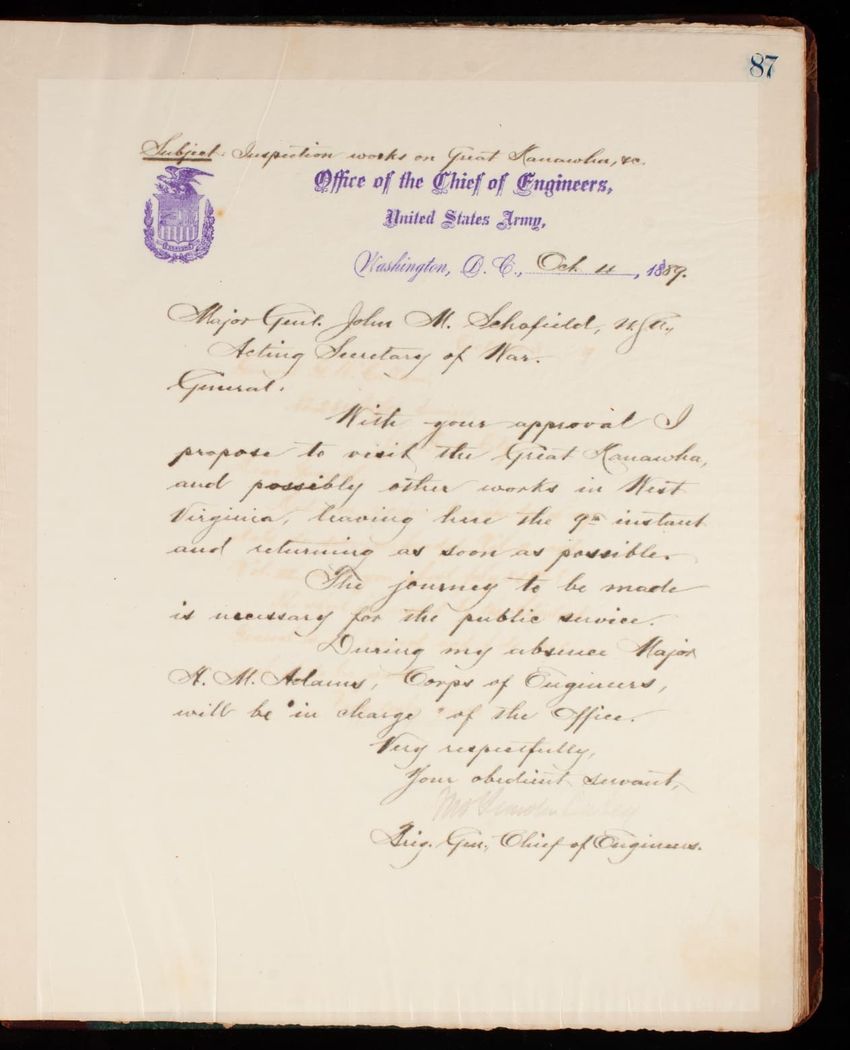 87
Subject: Inspection works on Great Kanawha, &c.
Office of the Chief of Engineers,
United States Army,
Washington, D. C., Oct. 4, 1889.
Major Genl. John M. Schofield, U.S.A.,
Acting Secretary of War.
General:
With your approval I
propose to visit the Great Kanawha,
and possibly other works in West
Virginia, leaving here the 9th instant
and returning as soon as possible.
The journey to be made
is necessary for the public service.
During my absence Major
H. M. Adams, Corps of Engineers,
will be "in charge" of the Office.
Very respectfully,
Your obedient servant,
Thos Lincoln Casey
Brig. Gen., Chief of Engineers.